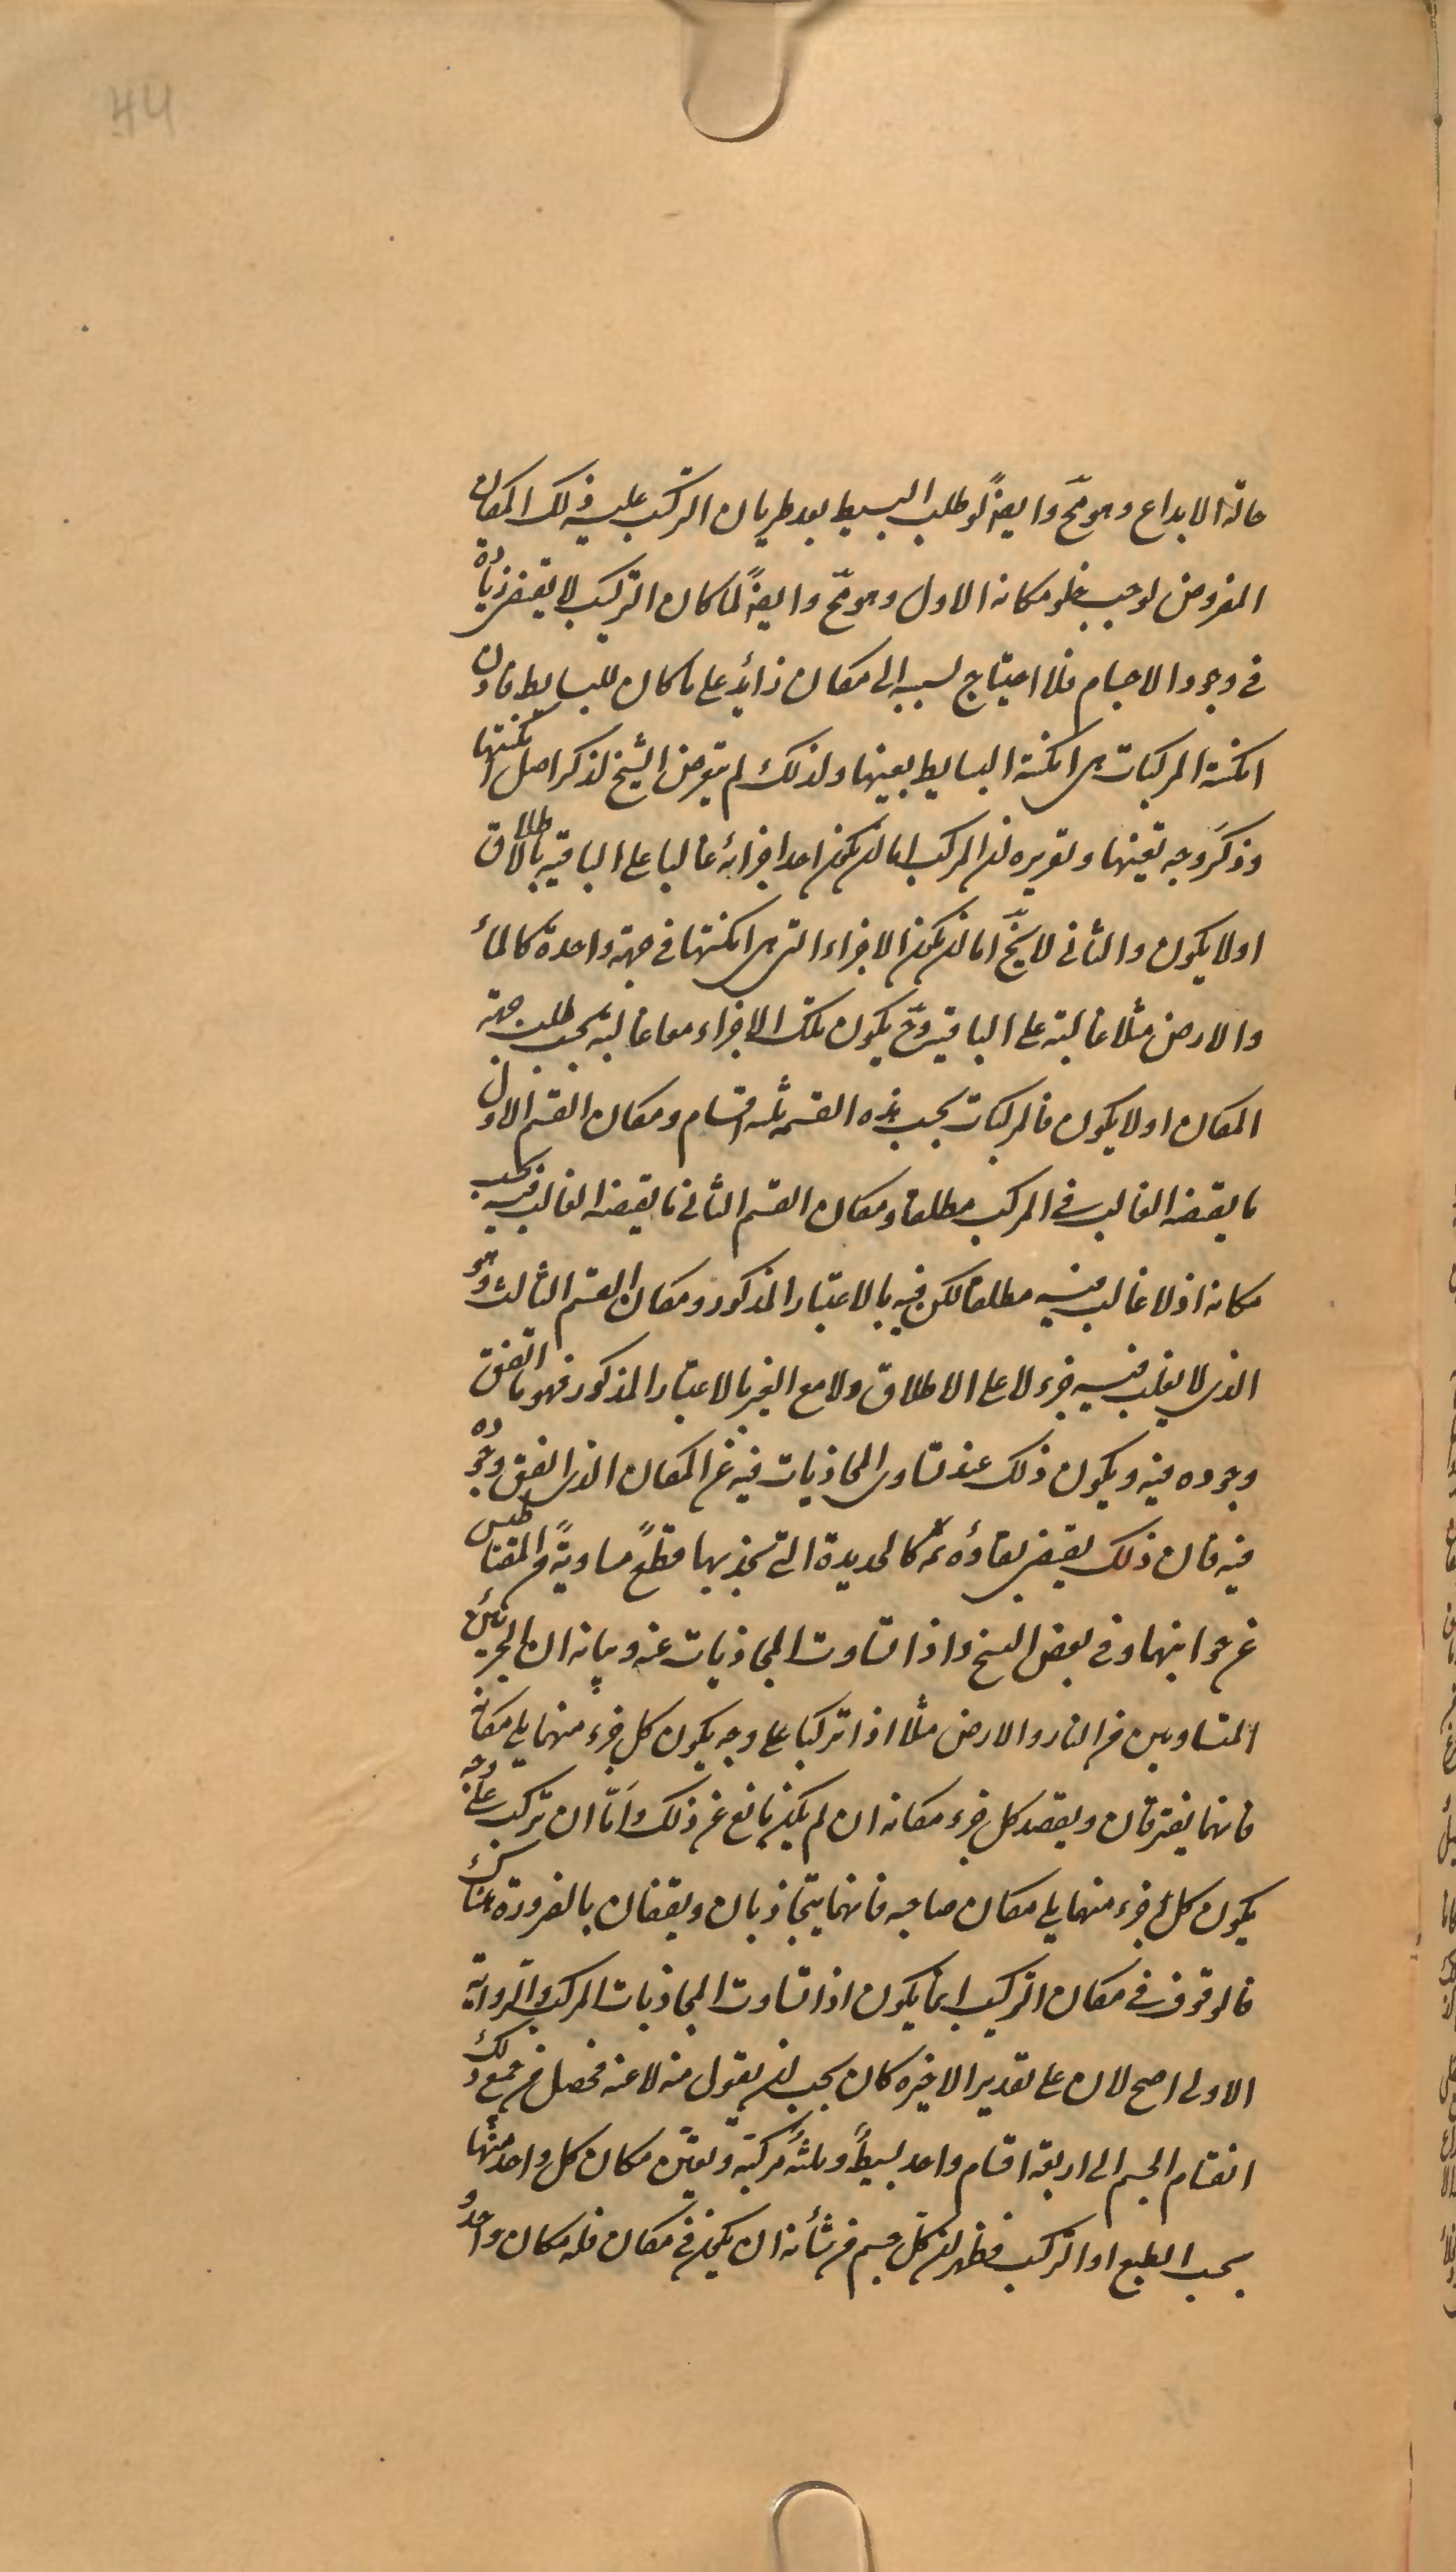 44
حالة الابداع وهو مح وايضاً لو طلب البسيط بعد طريان التركيب عليه ذلك المكان
المفروض لوجب خلو مكانه الاول وهو مح وايضاً لما كان التركيب لا يقتضى زيادة
فى وجود الاجسام فلا احتياج بسببه الى مكان زائد على ما كان للبسايط فاذن
امكنة المركبات هى امكنة البسايط بعينها ولذلك لم يتعرض الشيخ لذكر اصل امكنتها
وذكر وجه تعينها وتقريره ان المركب اما ان يكون احد اجزائه غالبا على الباقية بالاطلاق
او لا يكون والثانى لا يخ اما ان يكون الاجزاء التى امكنتها فى جهة واحدة كالماء
والارض مثلا غالبة على الباقية وح يكون تلك الاجزاء معا غالبة بحسب طلب جهة
المكان او لا يكون فالمركبات بحسب هذه القسمة ثلثة اقسام ومكان القسم الاول
ما يقتضه الغالب فى المركب مطلقا ومكان القسم الثانى ما يقتضه الغالب فيه بحسب
مكانه اذ لا غالب فيه مطلقا لكن فيه بالاعتبار المذكور ومكان القسم الثالث وهو
الذى لا يغلب فيه جزء لا على الاطلاق ولا مع الغير بالاعتبار المذكور فهو ما اتفق
وجوده فيه ويكون ذلك عند تساوى المجاذبات فيه عن المكان الذى اتفق وجوده
فيه فان ذلك يقتضى بقاؤه ثمه كالحديدة التى تجذبها قطع متساوية من المقناطيس
عن جوانبها وفى بعض النسخ واذا تساوت المجاذبات عنه وبيانه ان الجزئين
المتساويين من النار والارض مثلا اذا تركبا على وجه يكون كل جزء منهما يلى مكانه
فانهما يفترقان ويقصد كل جزء مكانه ان لم يكن مانع عن ذلك واما ان تركب على وجه
يكون كل جزء منهما يلى مكان صاحبه فانهما يتجاذبان ويقفان بالضرورة هناك
فالوقوف فى مكان التركيب انما يكون اذا تساوت المجاذبات المركب والرواية
الاولى اصح لان على تقدير الاخيرة كان يجب ان يقول منه لا عنه فحصل من جميع ذلك
انقسام الجسم الى اربعة اقسام واحد بسيط وثلثة مركبة وتعين مكان كل واحد منها
بحسب الطبع او التركيب فظهر ان كل جسم من شأنه ان يكون فى مكان فله مكان واحد